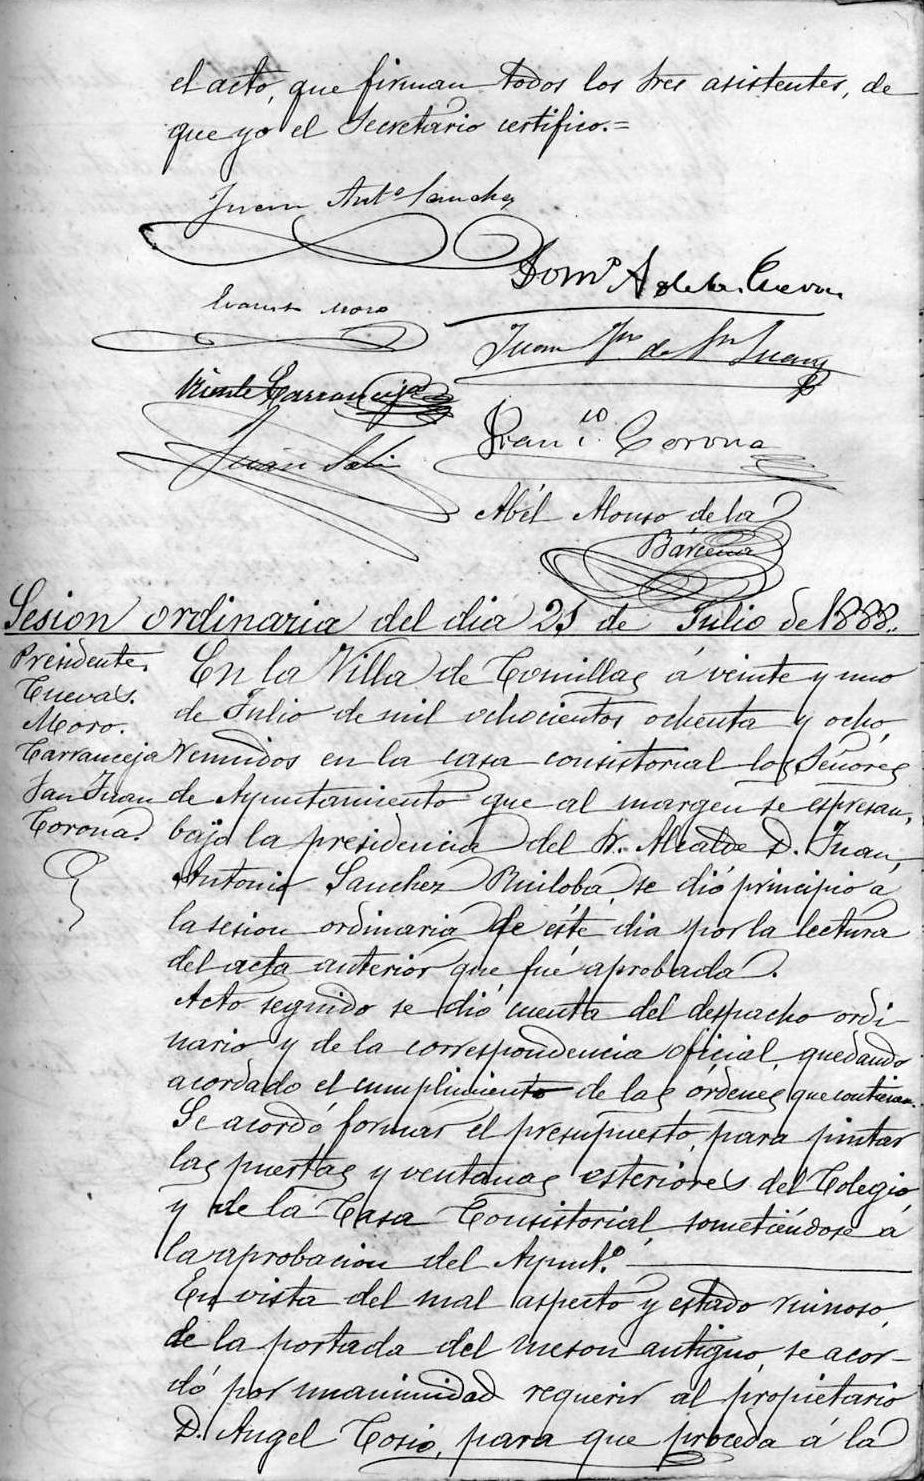 el acto, que firman todos los Sres asistentes, de
que yo el Secretario certifico.=
Juan Antº Sanchez
Domº A de la Cueva
Evaristo Moro
Juan de Sn Juan
Vicente Carranceja
Franco. Corona
Juan
Abél Alonso de la
Bárcena
Sesion ordinaria del dia 21 de Julio de 1888.
Presidente.
Cuevas.
Moro.
Carranceja
San Juan
Corona.
En la Villa de Comillas á veinte y uno
de Julio de mil ochocientos ochenta y ocho,
reunidos en la casa consistorial los Señores
de Ayuntamiento que al margen se espresan,
bajo la presidencia del Sr. Alcalde D. Juan
Antonio Sanchez Ruiloba, se dió principio á
la sesion ordinaria de éste dia por la lectura
del acta anterior que fué aprobada.
Acto seguido se dió cuenta del despacho ordi-
nario y de la correspondencia oficial, quedando
acordado el cumplimiento de las órdenes que contienen.
Se acordó formar el presupuesto para pintar
las puertas y ventanas esteriores del Colegio
y de la Casa Consistorial, sometiéndose á
la aprobacion del Ayunt.º
En vista del mal aspecto y estado ruinoso,
de la portada del meson antiguo, se acor-
dó por unanimidad requerir al propietario
D. Angel Cosio, para que proceda á la